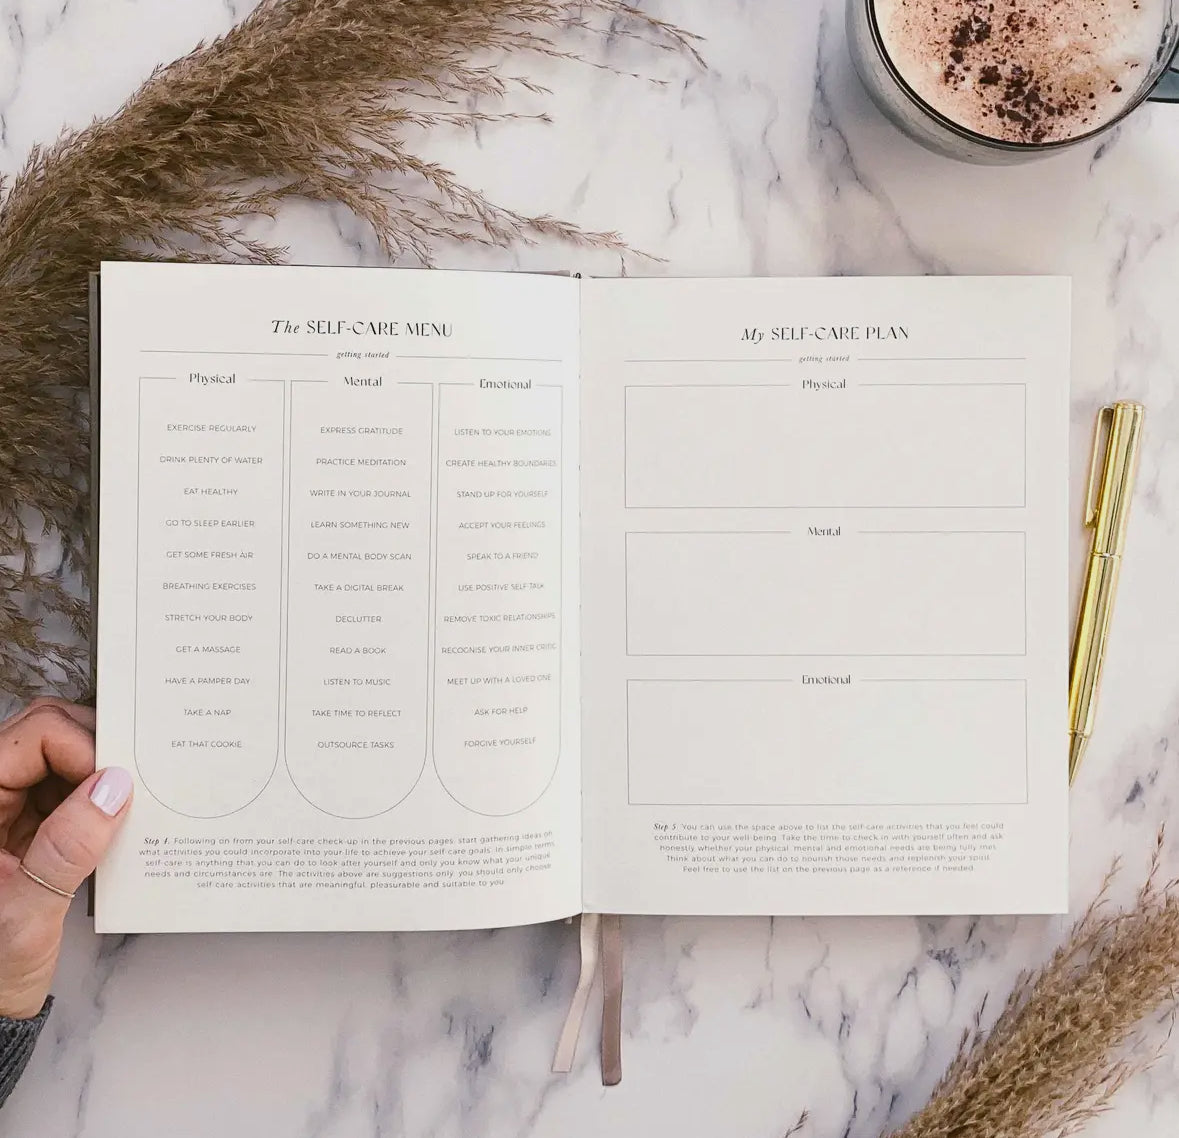 The SELF-CARE MENU
getting started
Physical
EXERCISE REGULARLY
DRINK PLENTY OF WATER
EAT HEALTHY
GO TO SLEEP EARLIER
GET SOME FRESH AIR
BREATHING EXERCISES
STRETCH YOUR BODY
GET A MASSAGE
HAVE A PAMPER DAY
TAKE A NAP
EAT THAT COOKIE
Mental
EXPRESS GRATITUDE
PRACTICE MEDITATION
WRITE IN YOUR JOURNAL
LEARN SOMETHING NEW
DO A MENTAL BODY SCAN
TAKE A DIGITAL BREAK
DECLUTTER
READ A BOOK
LISTEN TO MUSIC
TAKE TIME TO REFLECT
OUTSOURCE TASKS
Emotional
LISTEN TO YOUR EMOTIONS
CREATE HEALTHY BOUNDARIES
STAND UP FOR YOURSELF
ACCEPT YOUR FEELINGS
SPEAK TO A FRIEND
USE POSITIVE SELF TALK
REMOVE TOXIC RELATIONSHIPS
RECOGNISE YOUR INNER CRITIC
MEET UP WITH A LOVED ONE
ASK FOR HELP
FORGIVE YOURSELF
Step 4. Following on from your self-care check-up in the previous pages, start gathering ideas of
what activities you could incorporate into your life to achieve your self-care goals. In simple terms,
self-care is anything that you can do to look after yourself and only you know what your unique
needs and circumstances are. The activities above are suggestions only, you should only choose
self care activities that are meaningful, pleasurable and suitable to you.
My SELF-CARE PLAN
getting started
Physical
Mental
Emotional
Step 5. You can use the space above to list the self-care activities that you feel could
contribute to your well-being. Take the time to check in with yourself often and ask
honestly whether your physical, mental and emotional needs are being fully met.
Think about what you can do to nourish those needs and replenish your spirit.
Feel free to use the list on the previous page as a reference if needed.